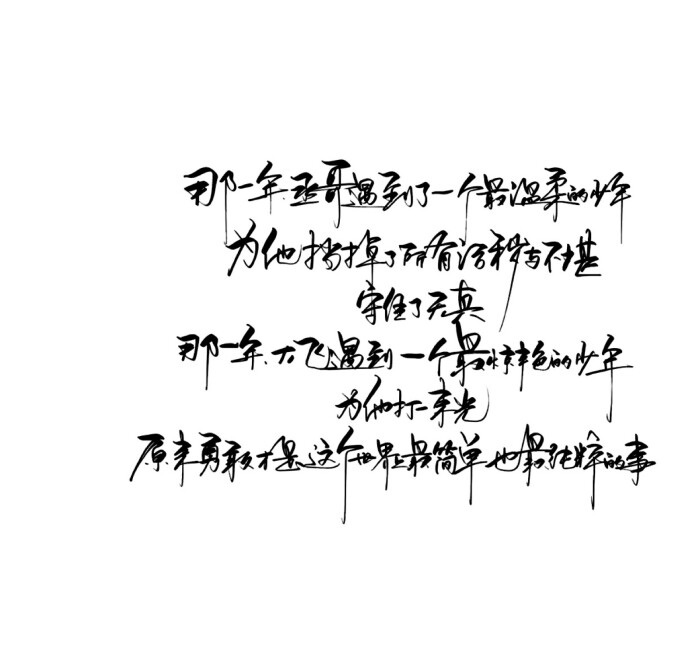 那一年,丞哥遇到了一个最温柔的少年
为他挡掉了所有污秽与不堪
守住了天真
那一年,大飞遇到一个最惊艳的少年
为他打一束光
原来勇敢才是这个世界上最简单也最纯粹的事